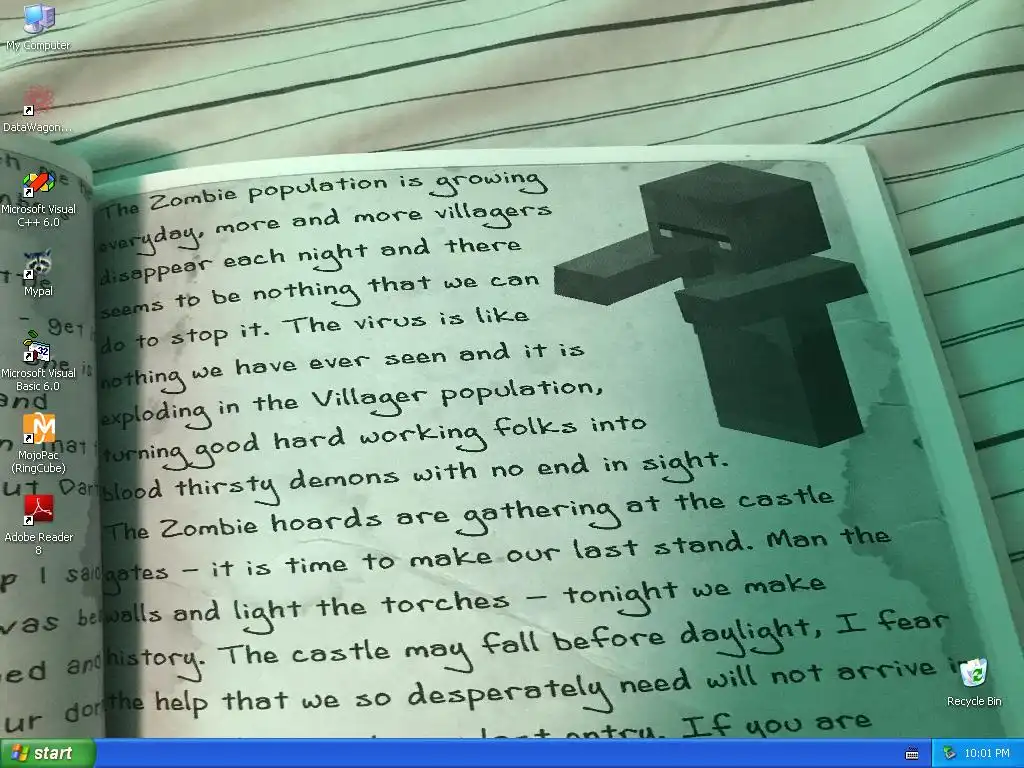 My Computer
DataWagon...
Microsoft Visual
C++ 6.0
Mypal
Microsoft Visual
Basic 6.0
MojoPac
(RingCube)
Adobe Reader
8
- get
and
ut
p I said
vas
ed and
ur
The Zombie population is growing
everyday, more and more villagers
disappear each night and there
seems to be nothing that we can
do to stop it. The virus is like
nothing we have ever seen and it is
exploding in the Villager population,
turning good hard working folks into
blood thirsty demons with no end in sight.
The Zombie hoards are gathering at the castle
gates – it is time to make our last stand. Man the
walls and light the torches – tonight we make
history. The castle may fall before daylight, I fear
the help that we so desperately need will not arrive
last entry. If you are
Recycle Bin
start
10:01 PM